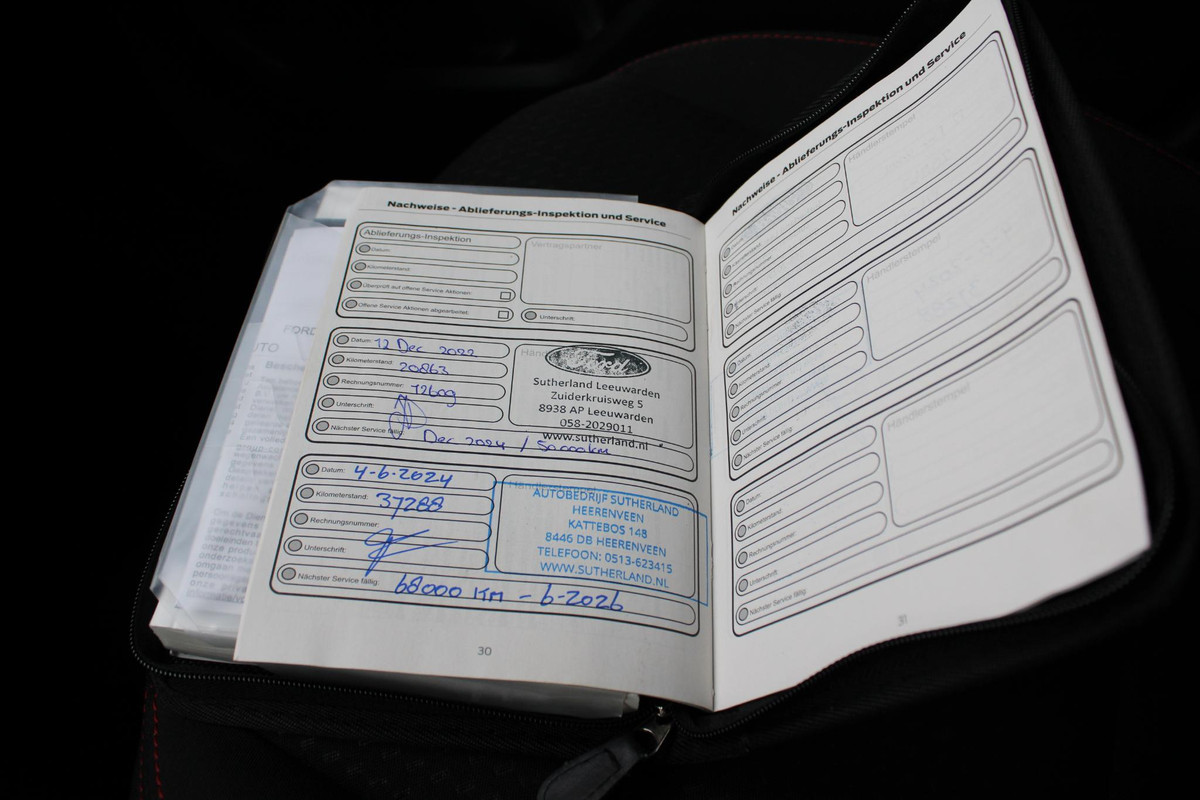 Nachweise - Ablieferungs-Inspektion und Service
Ablieferungs-Inspektion
Datum:
Kilometerstand:
Überprüft auf offene Service Aktionen:
Offene Service Aktionen abgearbeitet:
Vertragspartner
Unterschrift:
Datum: 12 Dec 2022
Kilometerstand: 20863
Rechnungsnummer: 12609
Unterschrift:
Nächster Service fällig: Dec 2024 / 50000km
Ford
Sutherland Leeuwarden
Zuiderkruisweg 5
8938 AP Leeuwarden
058-2029011
www.sutherland.nl
Datum: 4-6-2024
Kilometerstand: 37288
Rechnungsnummer:
Unterschrift:
Nächster Service fällig: 68000 KM - 6-2026
Händlerstempel
AUTOBEDRIJF SUTHERLAND
HEERENVEEN
KATTEBOS 148
8446 DB HEERENVEEN
TELEFOON: 0513-623415
WWW.SUTHERLAND.NL
30
Nachweise - Ablieferungs-Inspektion und Service
Händlerstempel
Nächster Service fällig:
Händlerstempel
Datum
Kilometerstand
Rechnungsnummer
Unterschrift
Nächster Service fällig:
Händlerstempel
Datum
Kilometerstand
Rechnungsnummer
Unterschrift
Nächster Service fällig:
31
FORD